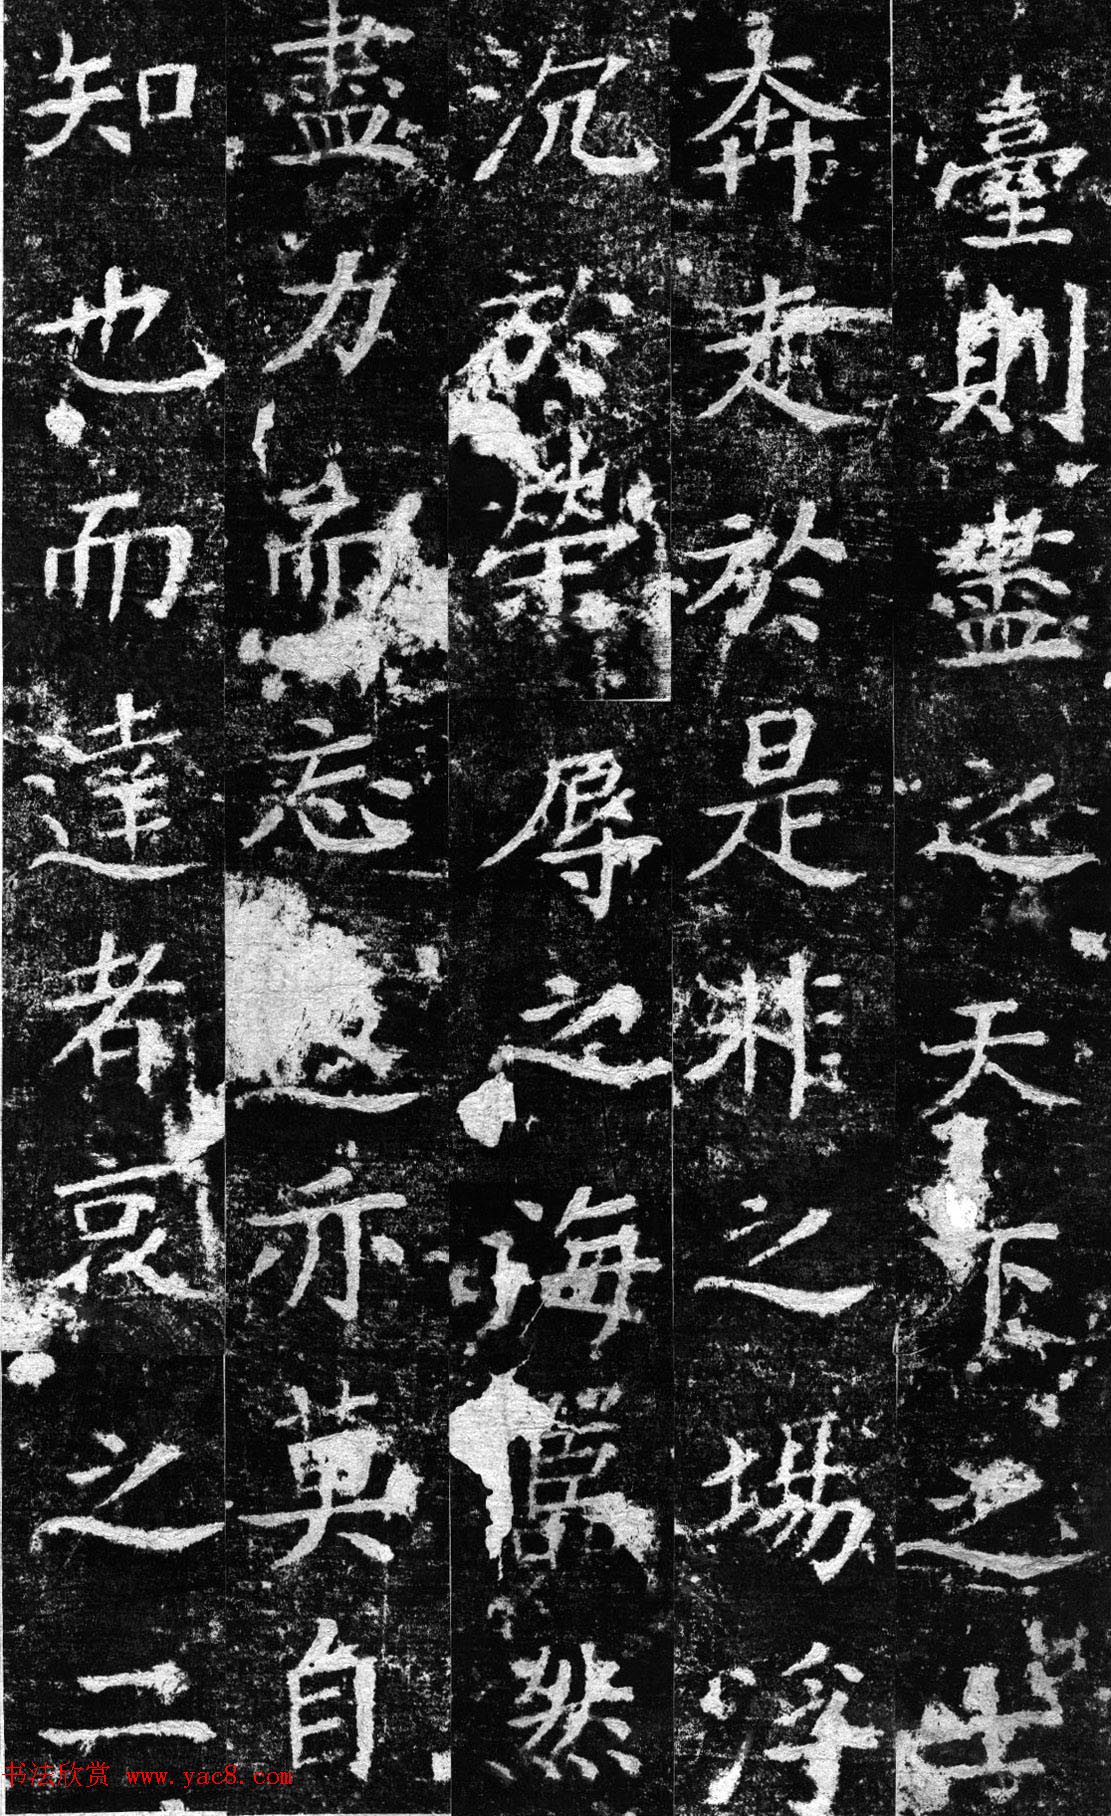 臺則盡之天下之士
奔走於是非之場浮
沉於榮辱之海囂然
盡力而忘返亦莫自
知也而達者哀之二
书法欣赏 www.yac8.com